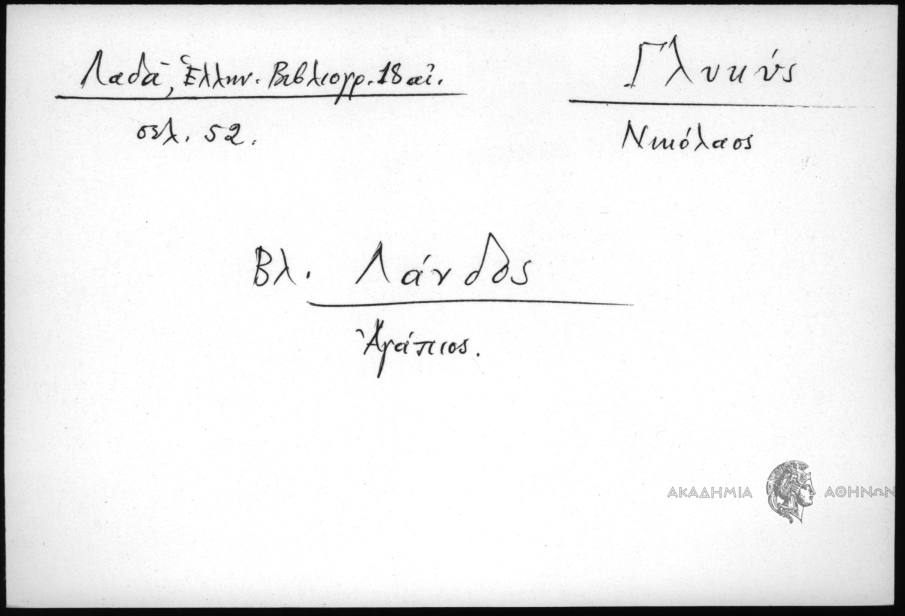 Λαδᾶ, Ἑλλην. Βιβλιογρ. 18 αἰ.
σελ. 52.
Γλυκύς
Νικόλαος
Βλ. Λάνδος
Ἀγάπιος.
ΑΚΑΔΗΜΙΑ ΑΘΗΝΩΝ